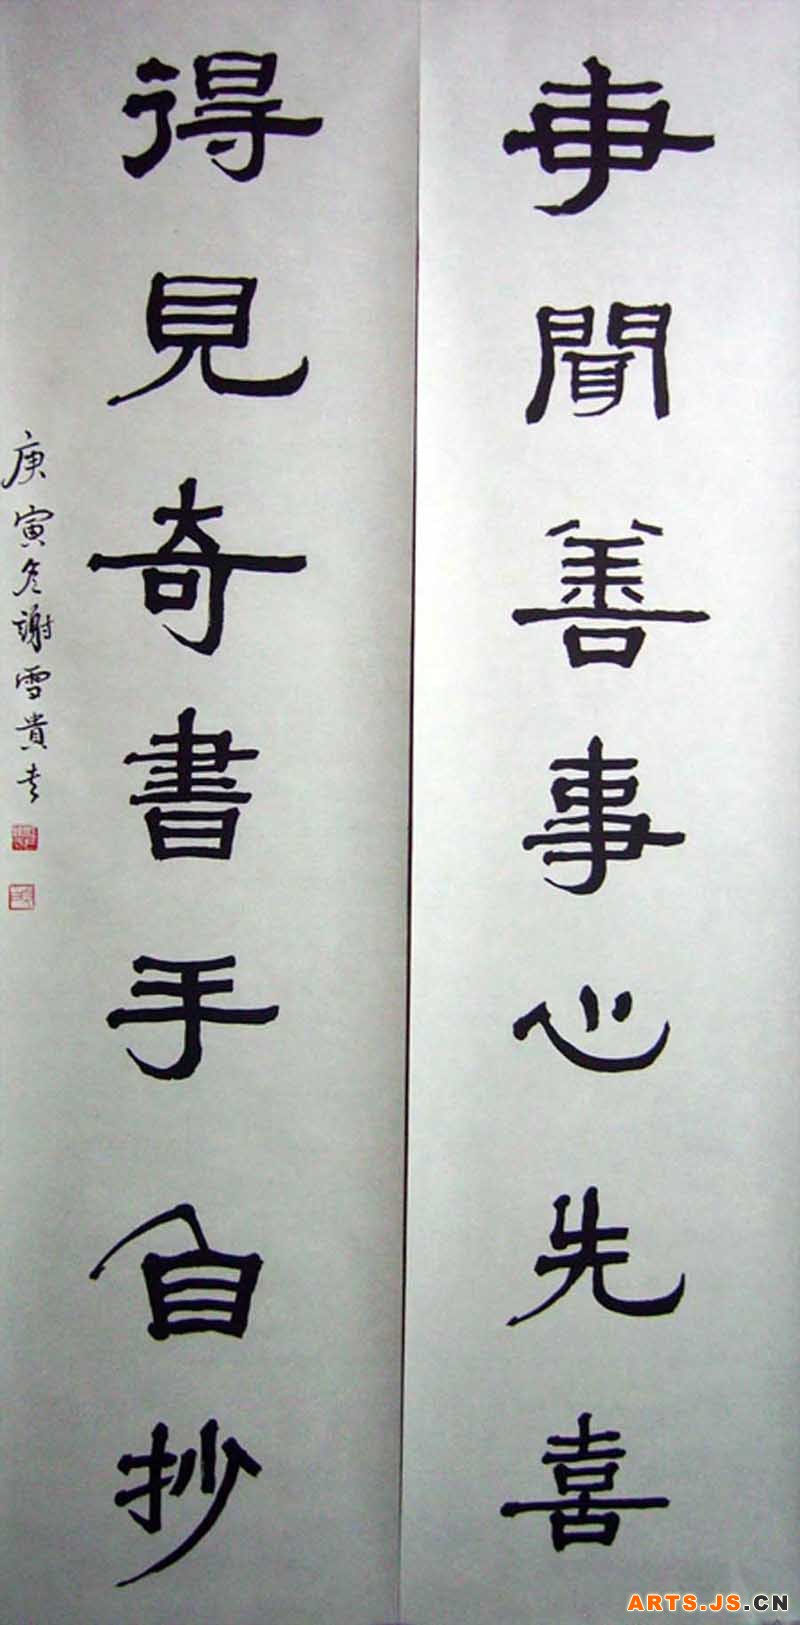 每聞善事心先喜
得見奇書手自抄
庚寅冬謝雪貴書
ARTS.JS.CN